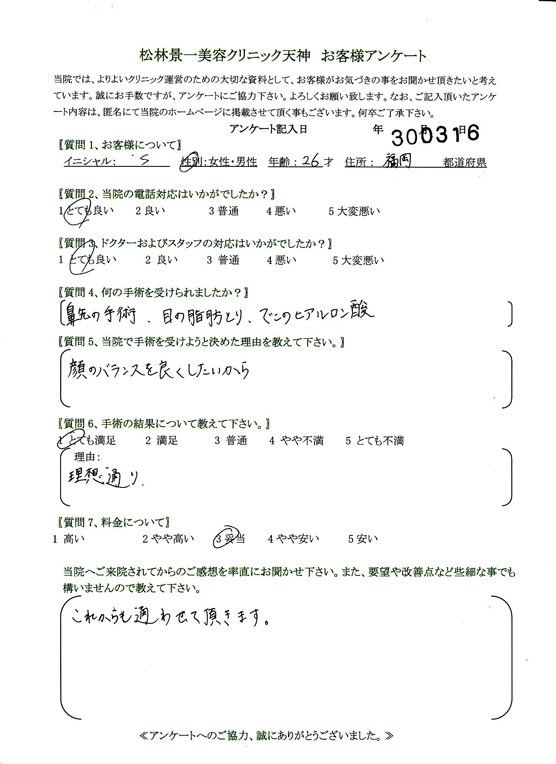 松林景一美容クリニック天神　お客様アンケート
当院では、よりよいクリニック運営のための大切な資料として、お客様がお気づきの事をお聞かせ頂きたいと考え
ています。誠にお手数ですが、アンケートにご協力下さい。よろしくお願い致します。なお、ご記入頂いたアンケ
ート内容は、匿名にて当院のホームページに掲載させて頂く事もございます。何卒ご了承下さい。
アンケート記入日　　年　　月　　日
300316
〖質問1、お客様について〗
イニシャル：　S　　性別：女性・男性　年齢：26才　住所：　福岡　　都道府県
〖質問2、当院の電話対応はいかがでしたか？〗
1 とても良い　　2 良い　　3 普通　　4 悪い　　5 大変悪い
〖質問3、ドクターおよびスタッフの対応はいかがでしたか？〗
1 とても良い　　2 良い　　3 普通　　4 悪い　　5 大変悪い
〖質問4、何の手術を受けられましたか？〗
鼻先の手術、目の脂肪とり、でこのヒアルロン酸
〖質問5、当院で手術を受けようと決めた理由を教えて下さい。〗
顔のバランスを良くしたいから
〖質問6、手術の結果について教えて下さい。〗
1 とても満足　　2 満足　　3 普通　　4 やや不満　　5 とても不満
理由：
理想通り．
〖質問7、料金について〗
1 高い　　2 やや高い　　3 妥当　　4 やや安い　　5 安い
当院へご来院されてからのご感想を率直にお聞かせ下さい。また、要望や改善点など些細な事でも
構いませんので教えて下さい。
これからも通わせて頂きます。
≪アンケートへのご協力、誠にありがとうございました。≫